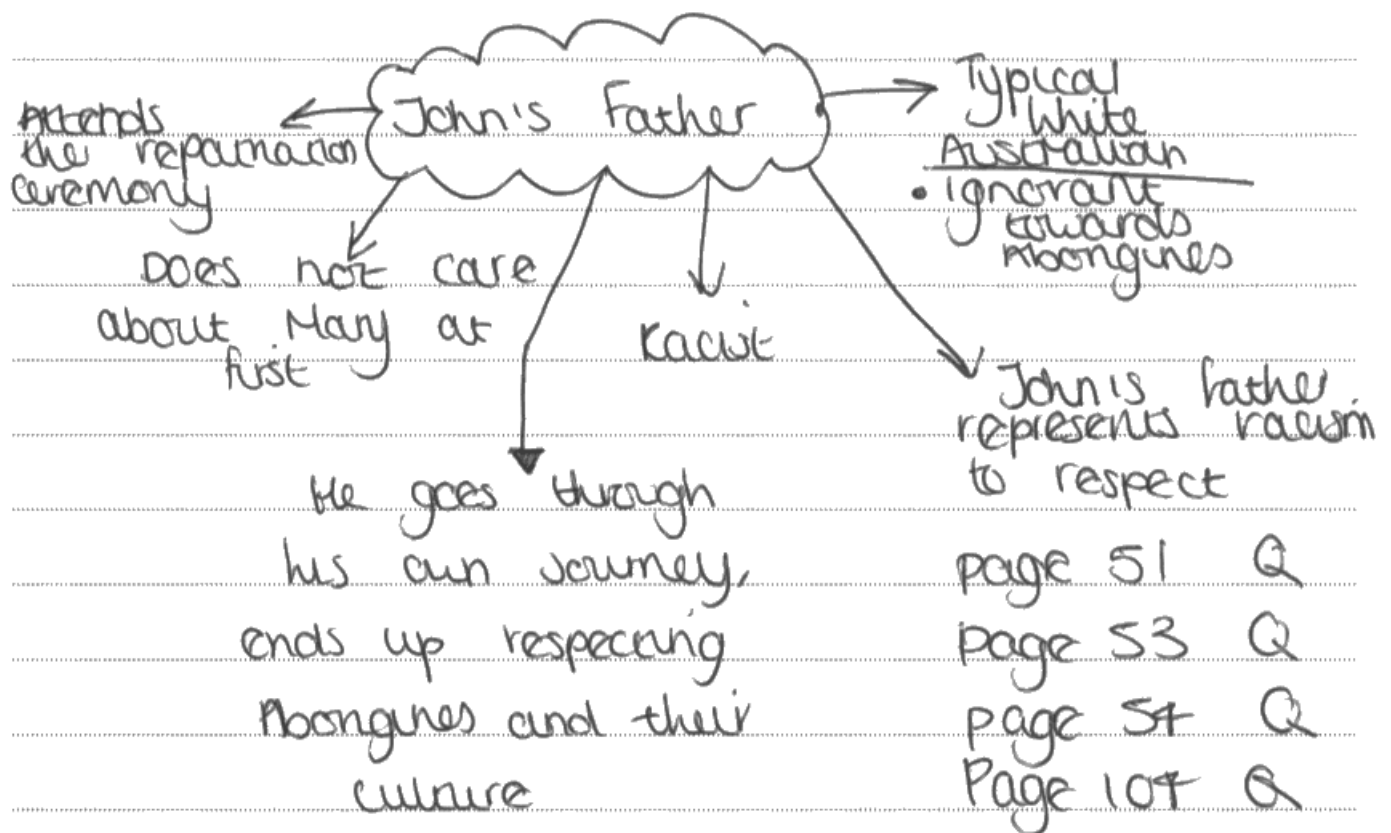 John's Father
Attends
the repatriation
ceremony
Typical
White
Australian
• ignorant
towards
Aborigines
Does not care
about Mary at
first
Racist
John's father
represents racism
to respect
He goes through
his own journey,
ends up respecting
Aborigines and their
culture
page 51 Q
page 53 Q
page 54 Q
Page 104 Q